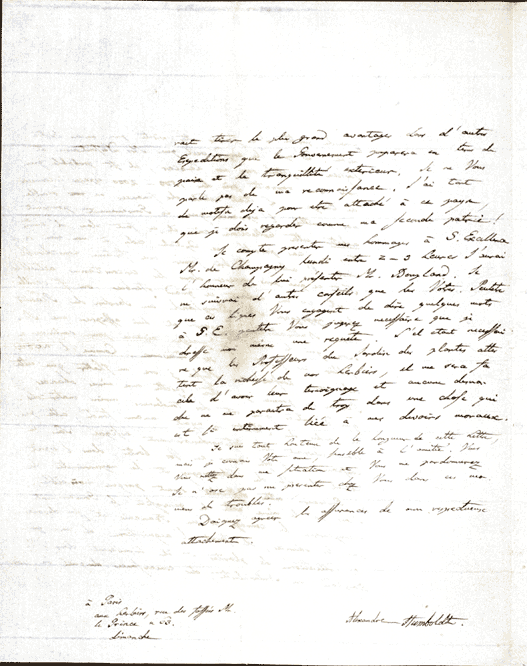 tirer le plus grand avantage lors d'autres
Expeditions que le Gouvernement preparera en tems de
paix et de tranquillité exterieure. Je ne Vous
parle pas de ma reconnoissance. J'ai tant
de motifs deja pour etre attaché à ce pays,
que je dois regarder comme ma seconde patrie!
Je compte presenter mes hommages à S. Excellence
M. de Champagny lundi entre 2-3 heures. J'aurai
l'honneur de lui presenter M. Bonpland. Je
ne suivrai d'autres conseils que les Votres.
que ces lignes Vous engagent de dire quelques mots
à S.E. Vous jugez necessaire que je
dresse moi même une requete. S'il etait necessaire
que les Professeurs du Jardin des plantes
la richesse de nos herbiers, il me sera fa
cile d'avoir leur temoignage et aucune demar
che ne me paraitra de trop dans une chose qui
est si intimement liée à mes devoirs moraux.
Je suis tout honteux de la longueur de cette lettre,
mais je connais Votre ame, sensible à l'amitié. Vous
Vous dans ma situation et Vous me pardonnerez
Je n'ose pas me presenter chez Vous dans ces mo
mens de troubles.
Daignez agreer les assurances de mon respectueux
attachement.
Alexandre Humboldt.
à Paris
rue des
le Prince
dimanche